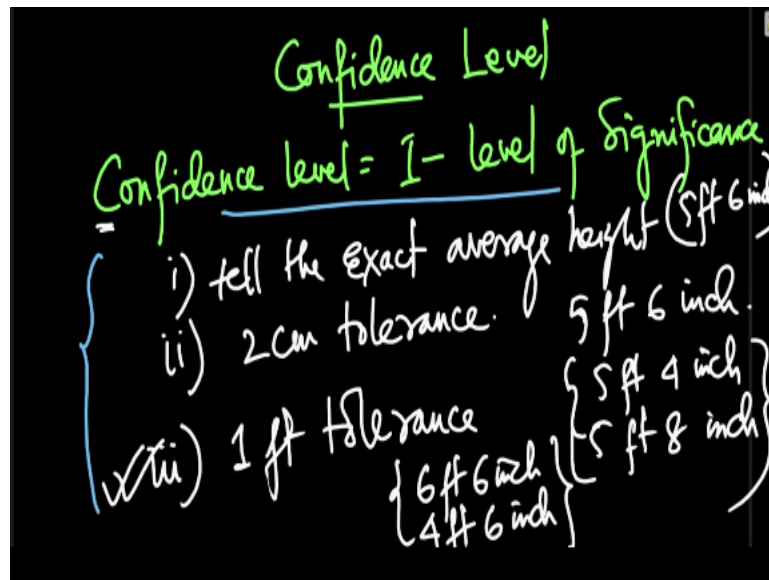 Confidence Level
Confidence level = 1 - level of Significance
i) tell the exact average height (5ft 6 inch)
ii) 2cm tolerance. 5 ft 6 inch.
{5 ft 4 inch
5 ft 8 inch}
iii) 1 ft tolerance
{6 ft 6 inch
4 ft 6 inch}